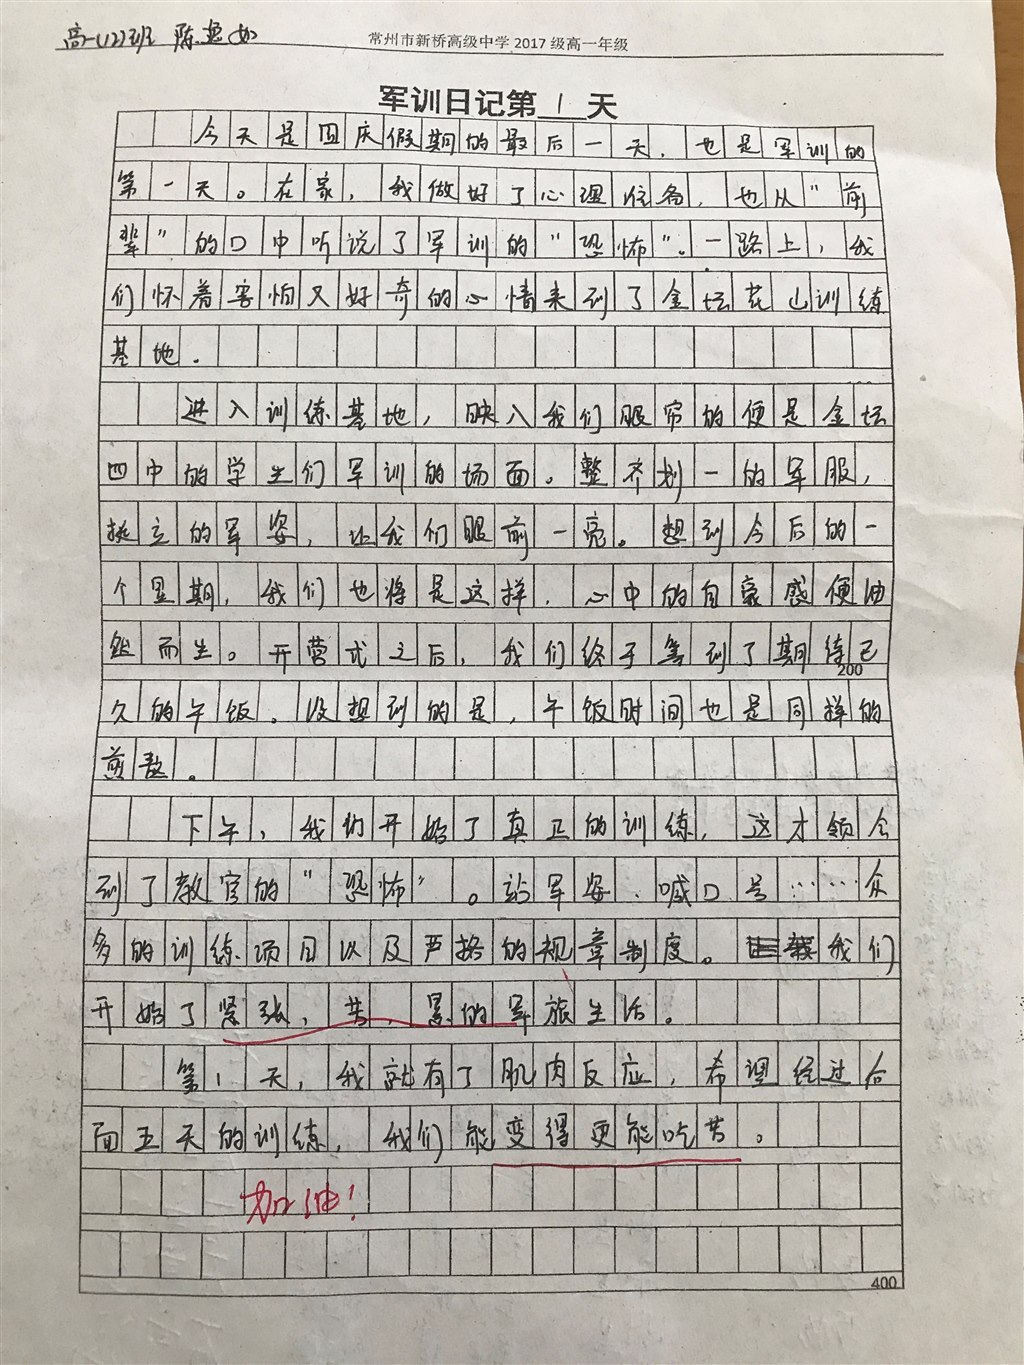 高一(12)班 陈 如
常州市新桥高级中学 2017 级高一年级
军训日记第 1 天
今天是国庆假期的最后一天，也是军训的
第一天。在家，我做好了心理准备，也从“前
辈”的口中听说了军训的“恐怖”。一路上，我
们怀着害怕又好奇的心情来到了金坛茅山训练
基地。
进入训练基地，映入我们眼帘的便是金坛
四中的学生们军训的场面。整齐划一的军服，
挺立的军姿，让我们眼前一亮。想到今后的一
个星期，我们也将是这样，心中的自豪感便油
然而生。开营式之后，我们终于等到了期待已
200
久的午饭。没想到的是，午饭时间也是同样的
煎熬。
下午，我们开始了真正的训练，这才领会
到了教官的“恐怖”。站军姿、喊口号……众
多的训练项目以及严格的规章制度。我们
开始了紧张，苦，累的军旅生活。
第1天，我就有了肌肉反应，希望经过后
面五天的训练，我们能变得更能吃苦。
加油！
400